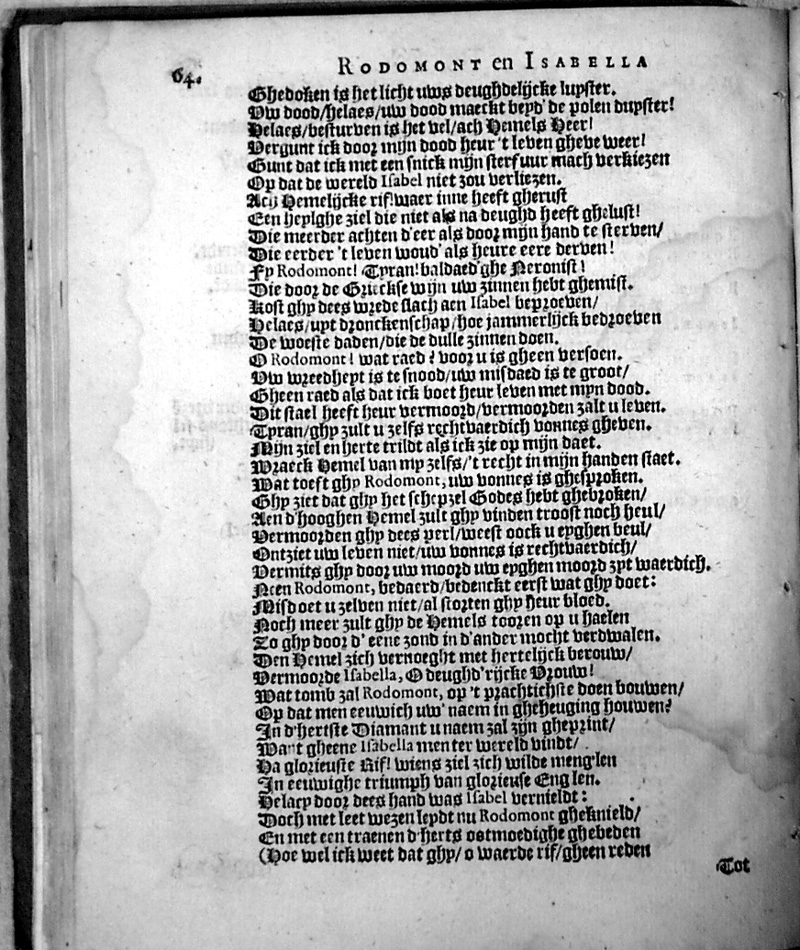 64.
RODOMONT en ISABELLA
Ghedoken is het licht uws deughdelijcke lupster.
Uw dood/helaes/uw dood maeckt beyd' de polen dupster!
Helaes/besturven is het vel/ach Hemels Heer!
Vergunt ick door mijn dood heur 't leven gheve weer!
Gunt dat ick met een snick mijn sterfuur mach verkiezen
Op dat de wereld Isabel niet zou verliezen.
Acy Hemelijcke rif! waer inne heeft gherust
Een heylghe ziel die niet als na deughd heeft ghelust!
Die meerder achten d'eer als door mijn hand te sterven/
Die eerder 't leven woud' als heure eere derven!
Fy Rodomont! Tyran! baldaed'ghe Neronist!
Die door de Grieckse wijn uw zinnen hebt ghemist.
Kost ghy dees wrede slach aen Isabel beproeven/
Helaes/uyt dronckenschap/hoe jammerlijck bedroeven
De woeste daden/die de dulle zinnen doen.
O Rodomont! wat raed? voor u is gheen versoen.
Uw wreedheyt is te snood/uw misdaed is te groot/
Gheen raed als dat ick boet heur leven met myn dood.
Dit stael heeft heur vermoord/vermoorden zalt u leven.
Tyran/ghy zult u zelfs rechtvaerdich vonnes gheven.
Mijn ziel en herte trildt als ick zie op mijn daet.
Wraeck Hemel van my zelfs/'t recht in mijn handen staet.
Wat toeft ghy Rodomont, uw vonnes is ghesproken.
Ghy ziet dat ghy het schepzel Godes hebt ghebroken/
Aen d'hooghen Hemel zult ghy vinden troost noch heul/
Vermoorden ghy dees perl/weest oock u eyghen beul/
Ontziet uw leven niet/uw vonnes is rechtvaerdich/
Vermits ghy door uw moord uw eyghen moord zyt waerdich.
Neen Rodomont, bedaerd/bedenckt eerst wat ghy doet:
Misdoet u zelven niet/al storten ghy heur bloed.
Noch meer zult ghy de Hemels tooren op u haelen
Zo ghy door d'eene zond in d'ander mocht verdwalen.
Den Hemel zich vernoeght met hertelijck berouw/
Vermoorde Isabella, O deughd'rijcke Vrouw!
Wat tomb zal Rodomont, op 't prachtichste doen bouwen/
Op dat men eeuwich uw' naem in gheheuging houwen?
In d'hertste Diamant u naem zal zijn gheprint/
Want gheene Isabella men ter wereld vindt/
Ha glorieuste Rif! wiens ziel zich wilde meng'len
In eeuwighe triumph van glorieuse Englen.
Helacy door dees hand was Isabel vernieldt:
Doch met leet wezen leydt nu Rodomont gheknield/
En met een traenen d'herts ootmoedighe ghebeden
(Hoe wel ick weet dat ghy/o waerde rif/gheen reden
Tot